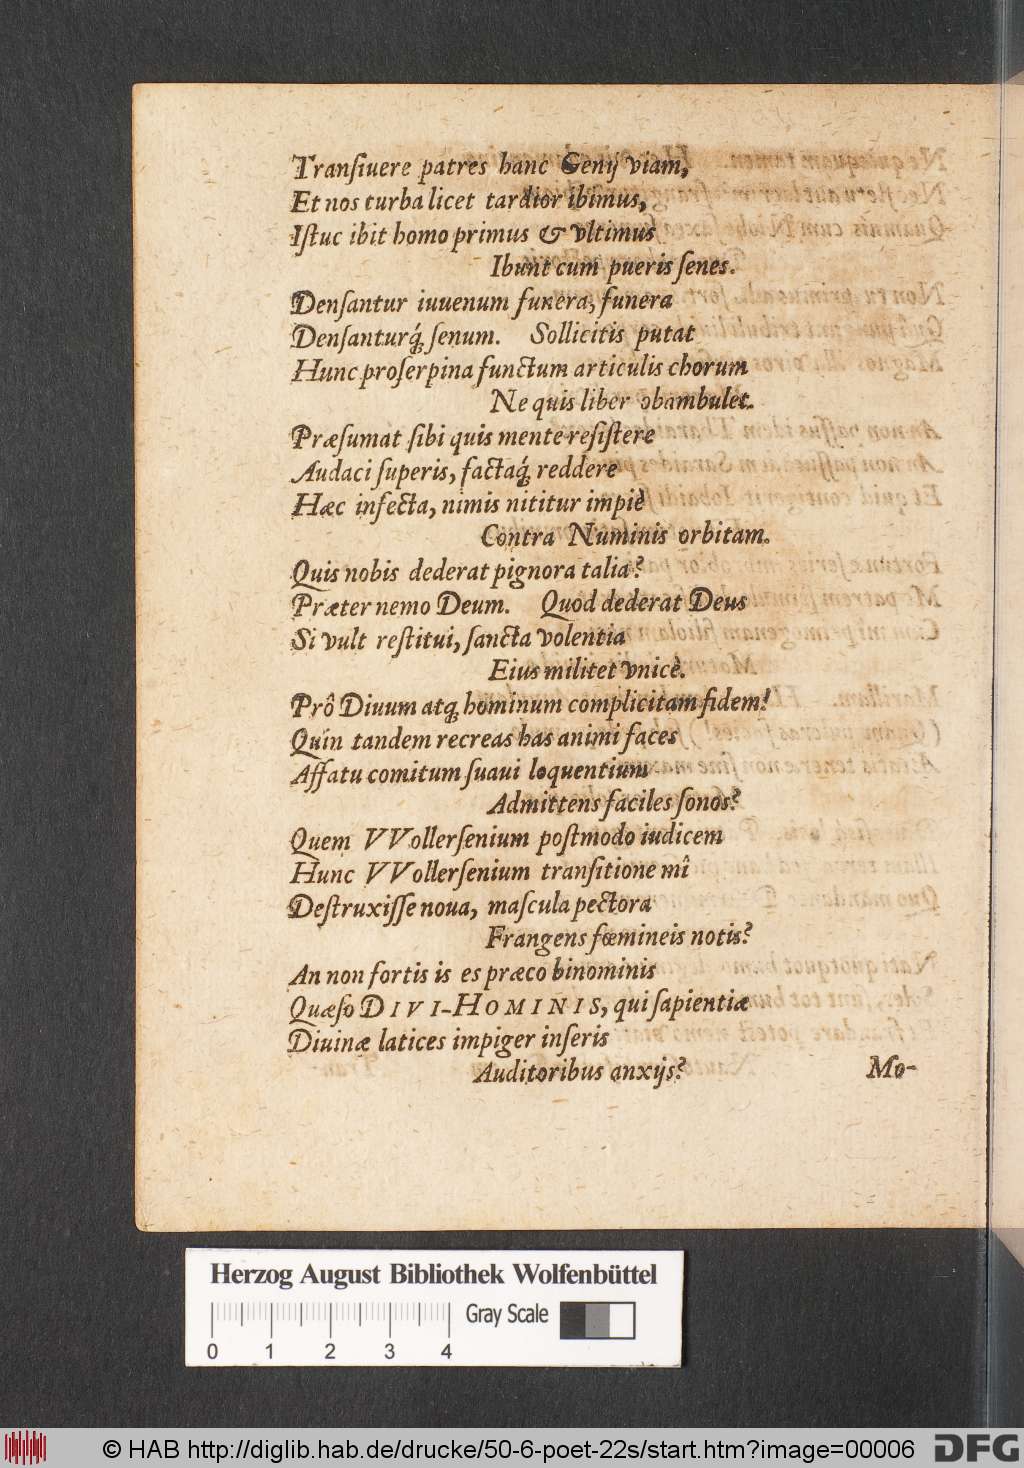 Tranſiuere patres hanc Genij viam,
Et nos turba licet tardior ibimus,
Iſtuc ibit homo primus & vltimus
Ibunt cum pueris ſenes.
Denſantur iuuenum funera, funera
Denſanturq́; ſenum. Sollicitis putat
Hunc proſerpina functum articulis chorum
Ne quis liber obambulet.
Præſumat ſibi quis mente reſiſtere
Audaci ſuperis, factaq́; reddere
Hæc infecta, nimis nititur impiè
Contra Numinis orbitam.
Quis nobis dederat pignora talia?
Præter nemo Deum. Quod dederat Deus
Si vult reſtitui, ſancta volentia
Eius militet vnicè.
Prô Diuum atq; hominum complicitam fidem!
Quin tandem recreas has animi faces
Affatu comitum ſuaui loquentium
Admittens faciles ſonos?
Quem VVollerſenium poſtmodo iudicem
Hunc VVollerſenium tranſitione mî
Deſtruxiſſe noua, maſcula pectora
Frangens fœmineis notis?
An non fortis is es præco binominis
Quæſo DIVI-HOMINIS, qui ſapientiæ
Diuinæ latices impiger inſeris
Auditoribus anxijs?
Mo-
Herzog August Bibliothek Wolfenbüttel
Gray Scale
0 1 2 3 4
© HAB http://diglib.hab.de/drucke/50-6-poet-22s/start.htm?image=00006
DFG